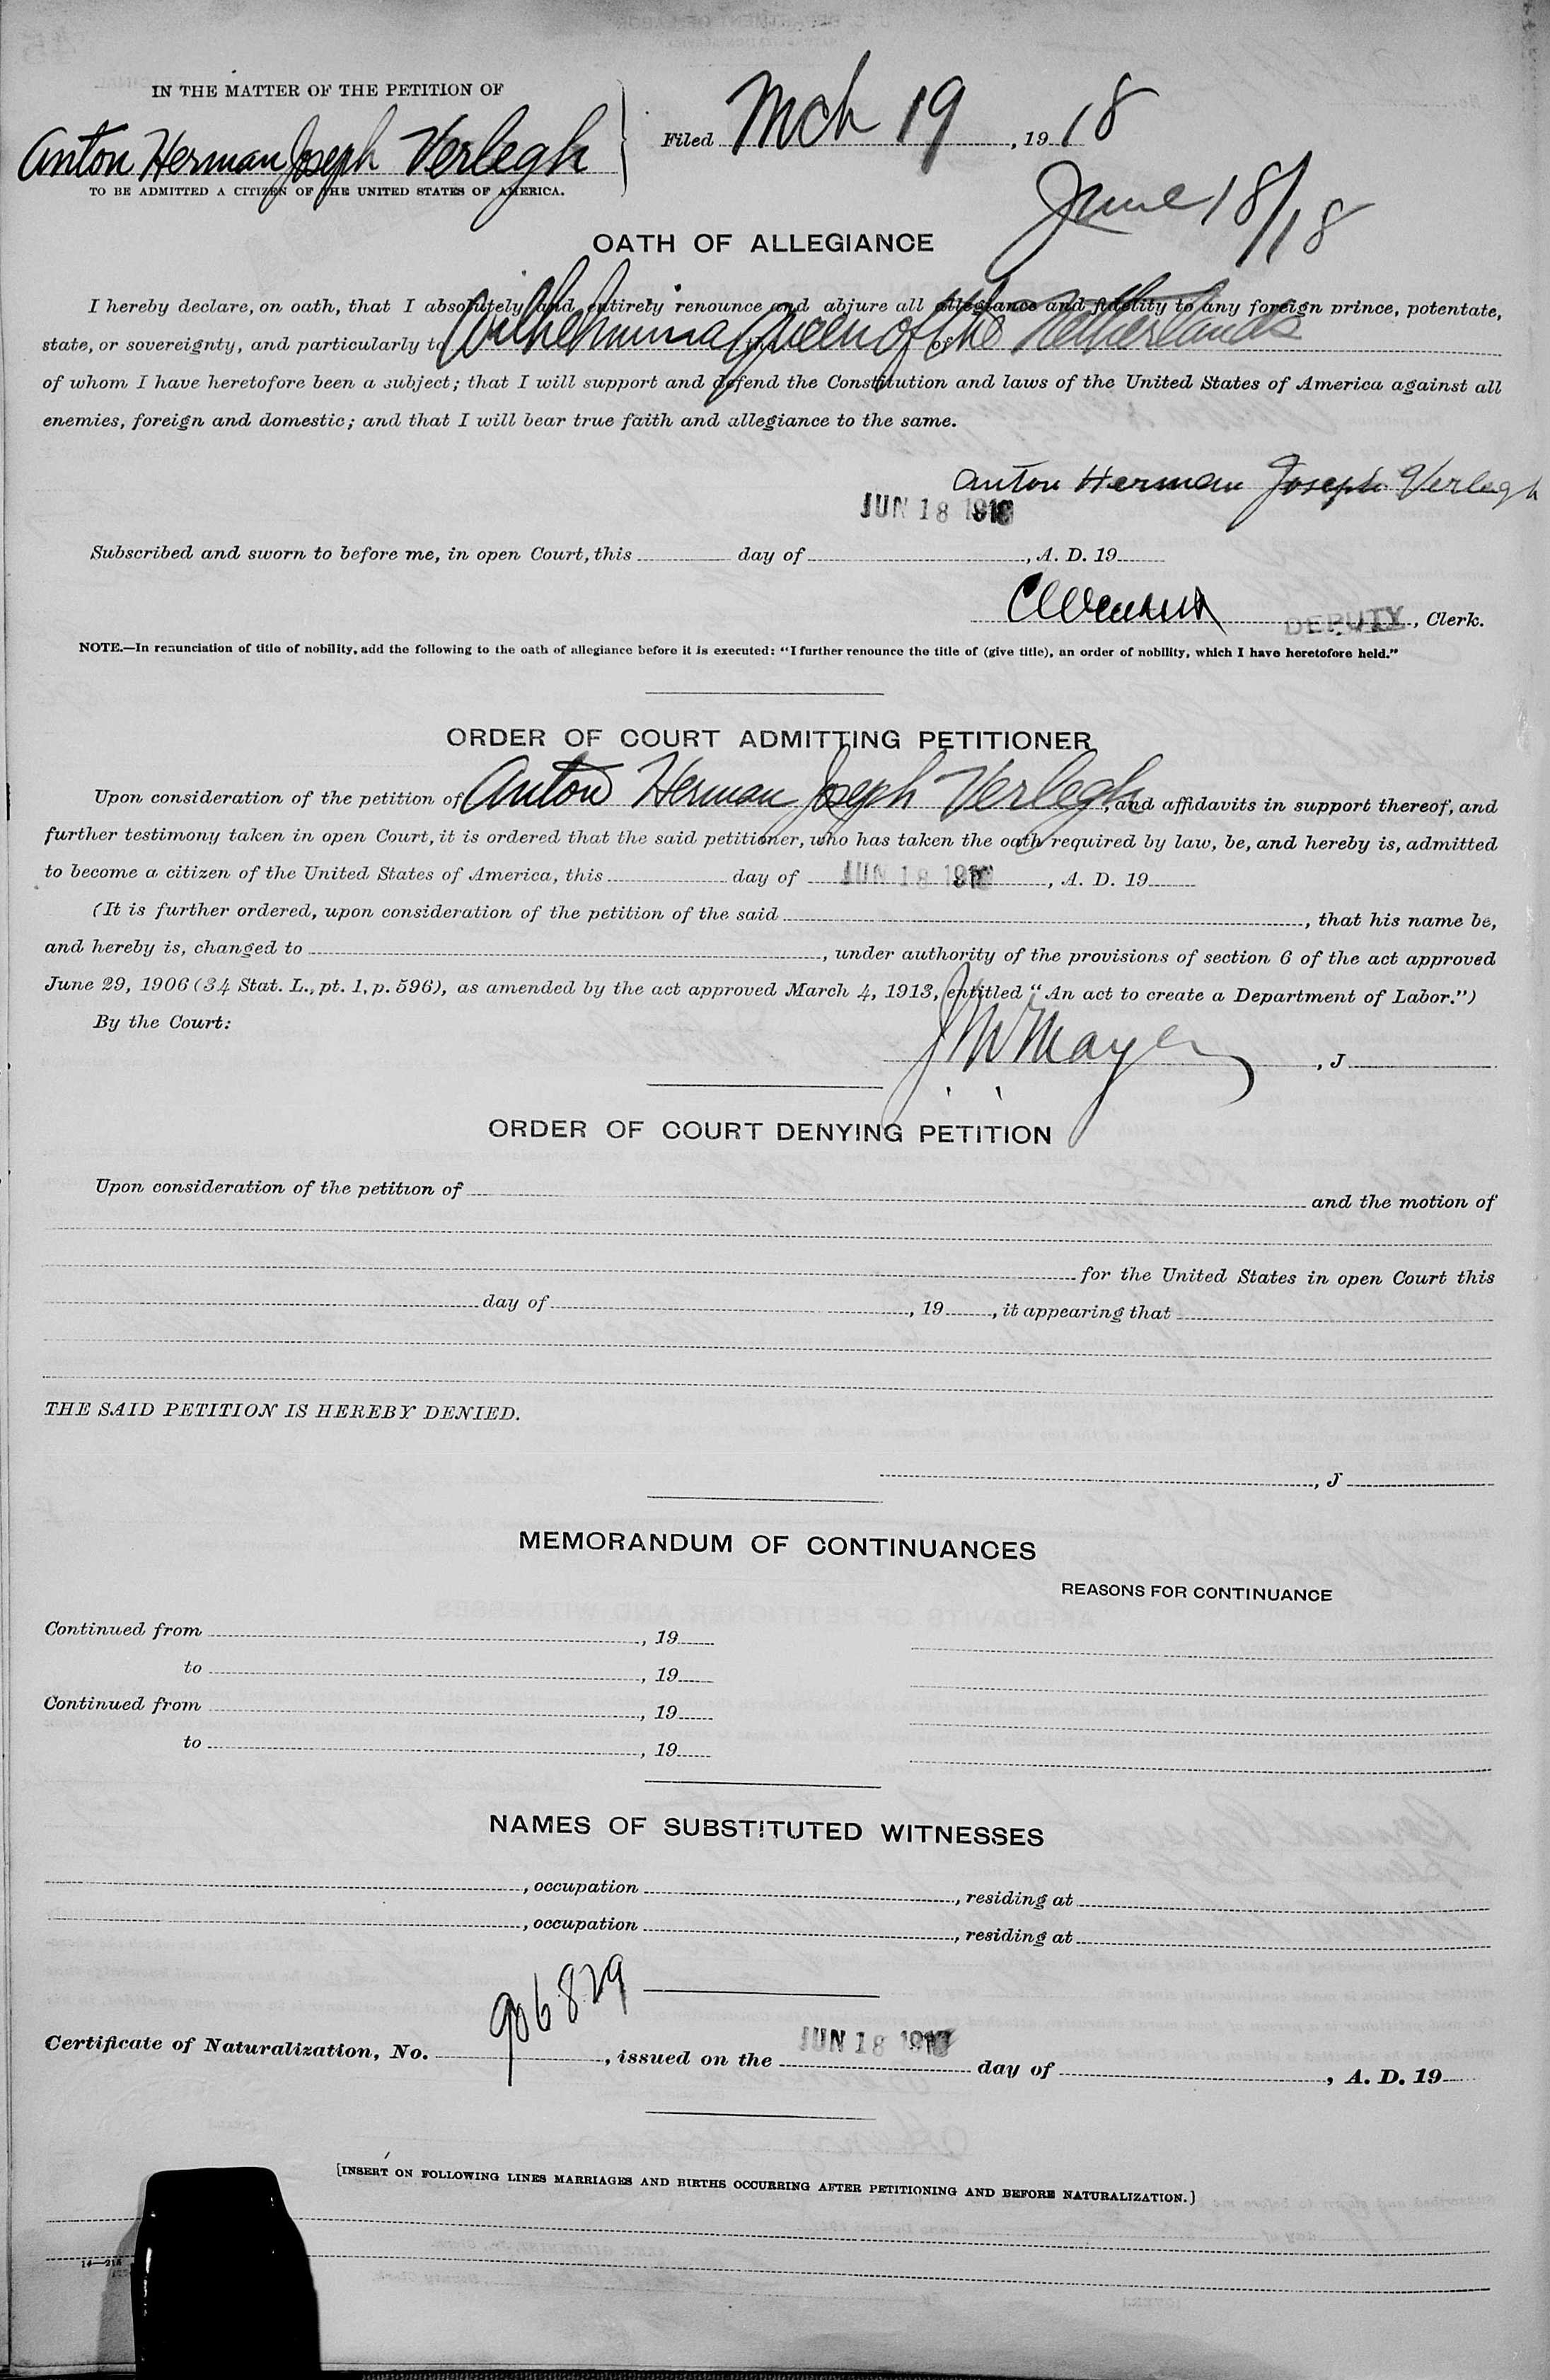 IN THE MATTER OF THE PETITION OF
Anton Herman Joseph Verlegh
TO BE ADMITTED A CITIZEN OF THE UNITED STATES OF AMERICA.
Filed Mch 19, 1918
June 18/18
OATH OF ALLEGIANCE
I hereby declare, on oath, that I absolutely and entirely renounce and abjure all allegiance and fidelity to any foreign prince, potentate,
state, or sovereignty, and particularly to Wilhelmina Queen of The Netherlands
of whom I have heretofore been a subject; that I will support and defend the Constitution and laws of the United States of America against all
enemies, foreign and domestic; and that I will bear true faith and allegiance to the same.
Anton Herman Joseph Verlegh
JUN 18 1918
Subscribed and sworn to before me, in open Court, this day of , A. D. 19
DEPUTY, Clerk.
NOTE.—In renunciation of title of nobility, add the following to the oath of allegiance before it is executed: "I further renounce the title of (give title), an order of nobility, which I have heretofore held."
ORDER OF COURT ADMITTING PETITIONER
Upon consideration of the petition of Anton Herman Joseph Verlegh, and affidavits in support thereof, and
further testimony taken in open Court, it is ordered that the said petitioner, who has taken the oath required by law, be, and hereby is, admitted
to become a citizen of the United States of America, this day of JUN 18 1918, A. D. 19
(It is further ordered, upon consideration of the petition of the said , that his name be,
and hereby is, changed to , under authority of the provisions of section 6 of the act approved
June 29, 1906 (34 Stat. L., pt. 1, p. 596), as amended by the act approved March 4, 1913, entitled "An act to create a Department of Labor.")
By the Court:
J M Mayer, J
ORDER OF COURT DENYING PETITION
Upon consideration of the petition of and the motion of
for the United States in open Court this
day of , 19 , it appearing that
THE SAID PETITION IS HEREBY DENIED.
, J
MEMORANDUM OF CONTINUANCES
REASONS FOR CONTINUANCE
Continued from , 19
to , 19
Continued from , 19
to , 19
NAMES OF SUBSTITUTED WITNESSES
, occupation , residing at
, occupation , residing at
Certificate of Naturalization, No. 906829, issued on the JUN 18 1918 day of , A. D. 19
[INSERT ON FOLLOWING LINES MARRIAGES AND BIRTHS OCCURRING AFTER PETITIONING AND BEFORE NATURALIZATION.]